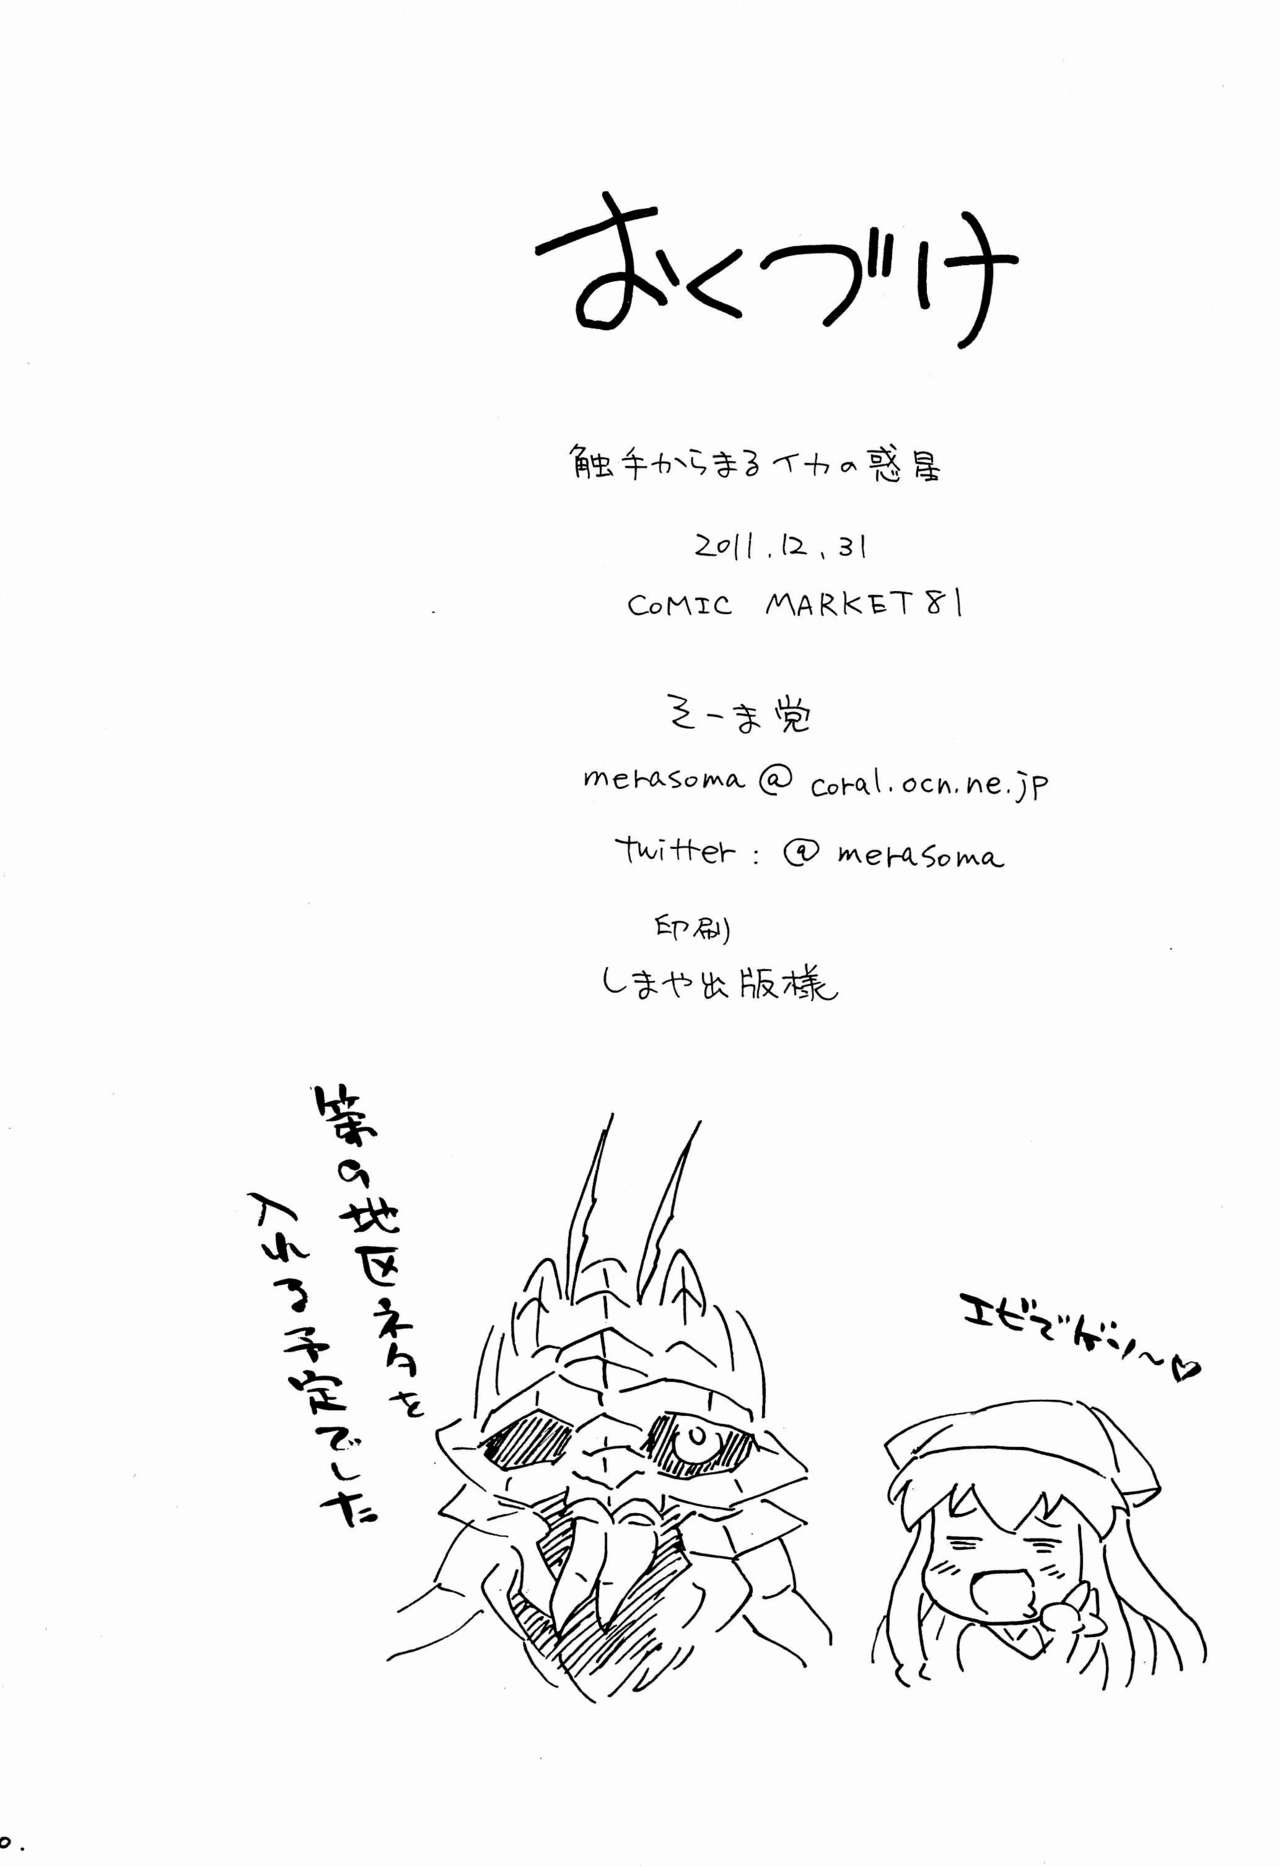 おくづけ
触手からまるイカの惑星
2011.12.31
COMIC MARKET81
そーま党
merasoma@coral.ocn.ne.jp
twitter:@merasoma
印刷
しまや出版様
エビでゲソ～♡
第の地区ネタを
入れる予定でした
0.